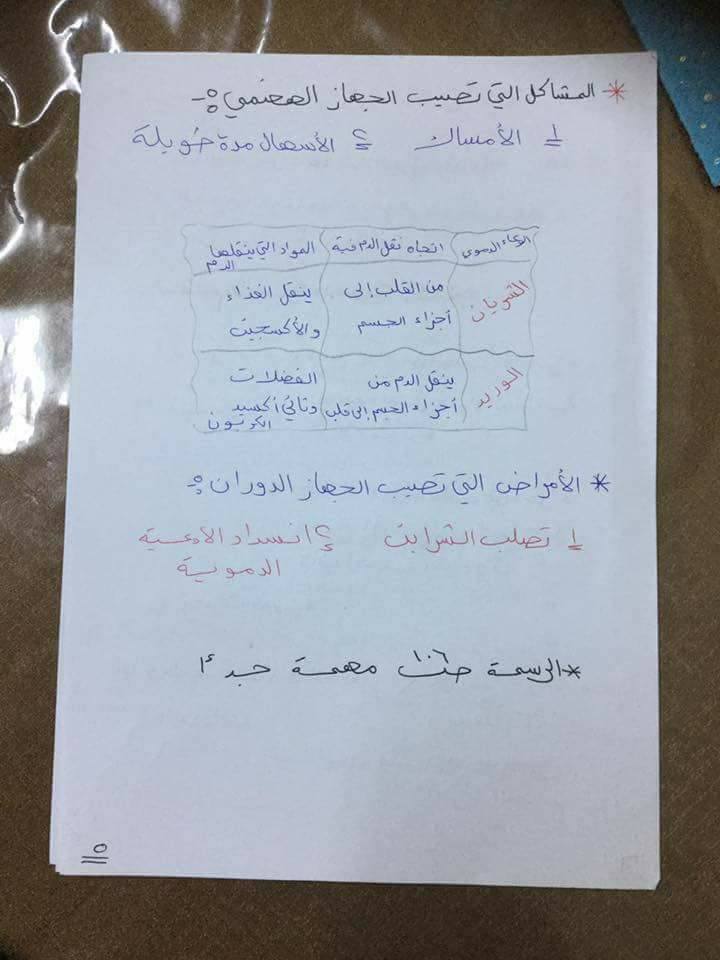 * المشاكل التي تصيب الجهاز الهضمي :-
١ الأمساك ٢ الأسهال مدة طويلة
الوعاء الدموي اتجاه نقل الدم فية المواد التي ينقلها الدم
الشريان من القلب إلى أجزاء الجسم ينقل الغذاء والأكسجين
الوريد ينقل الدم من أجزاء الجسم إلى قلب الفضلات وثاني أكسيد الكربون
* الأمراض التي تصيب الجهاز الدوران :-
١ تصلب الشرايين ٢ انسداد الأوعية
الدموية
* الرسمة ص ١٠٦ مهمة جداً
٥